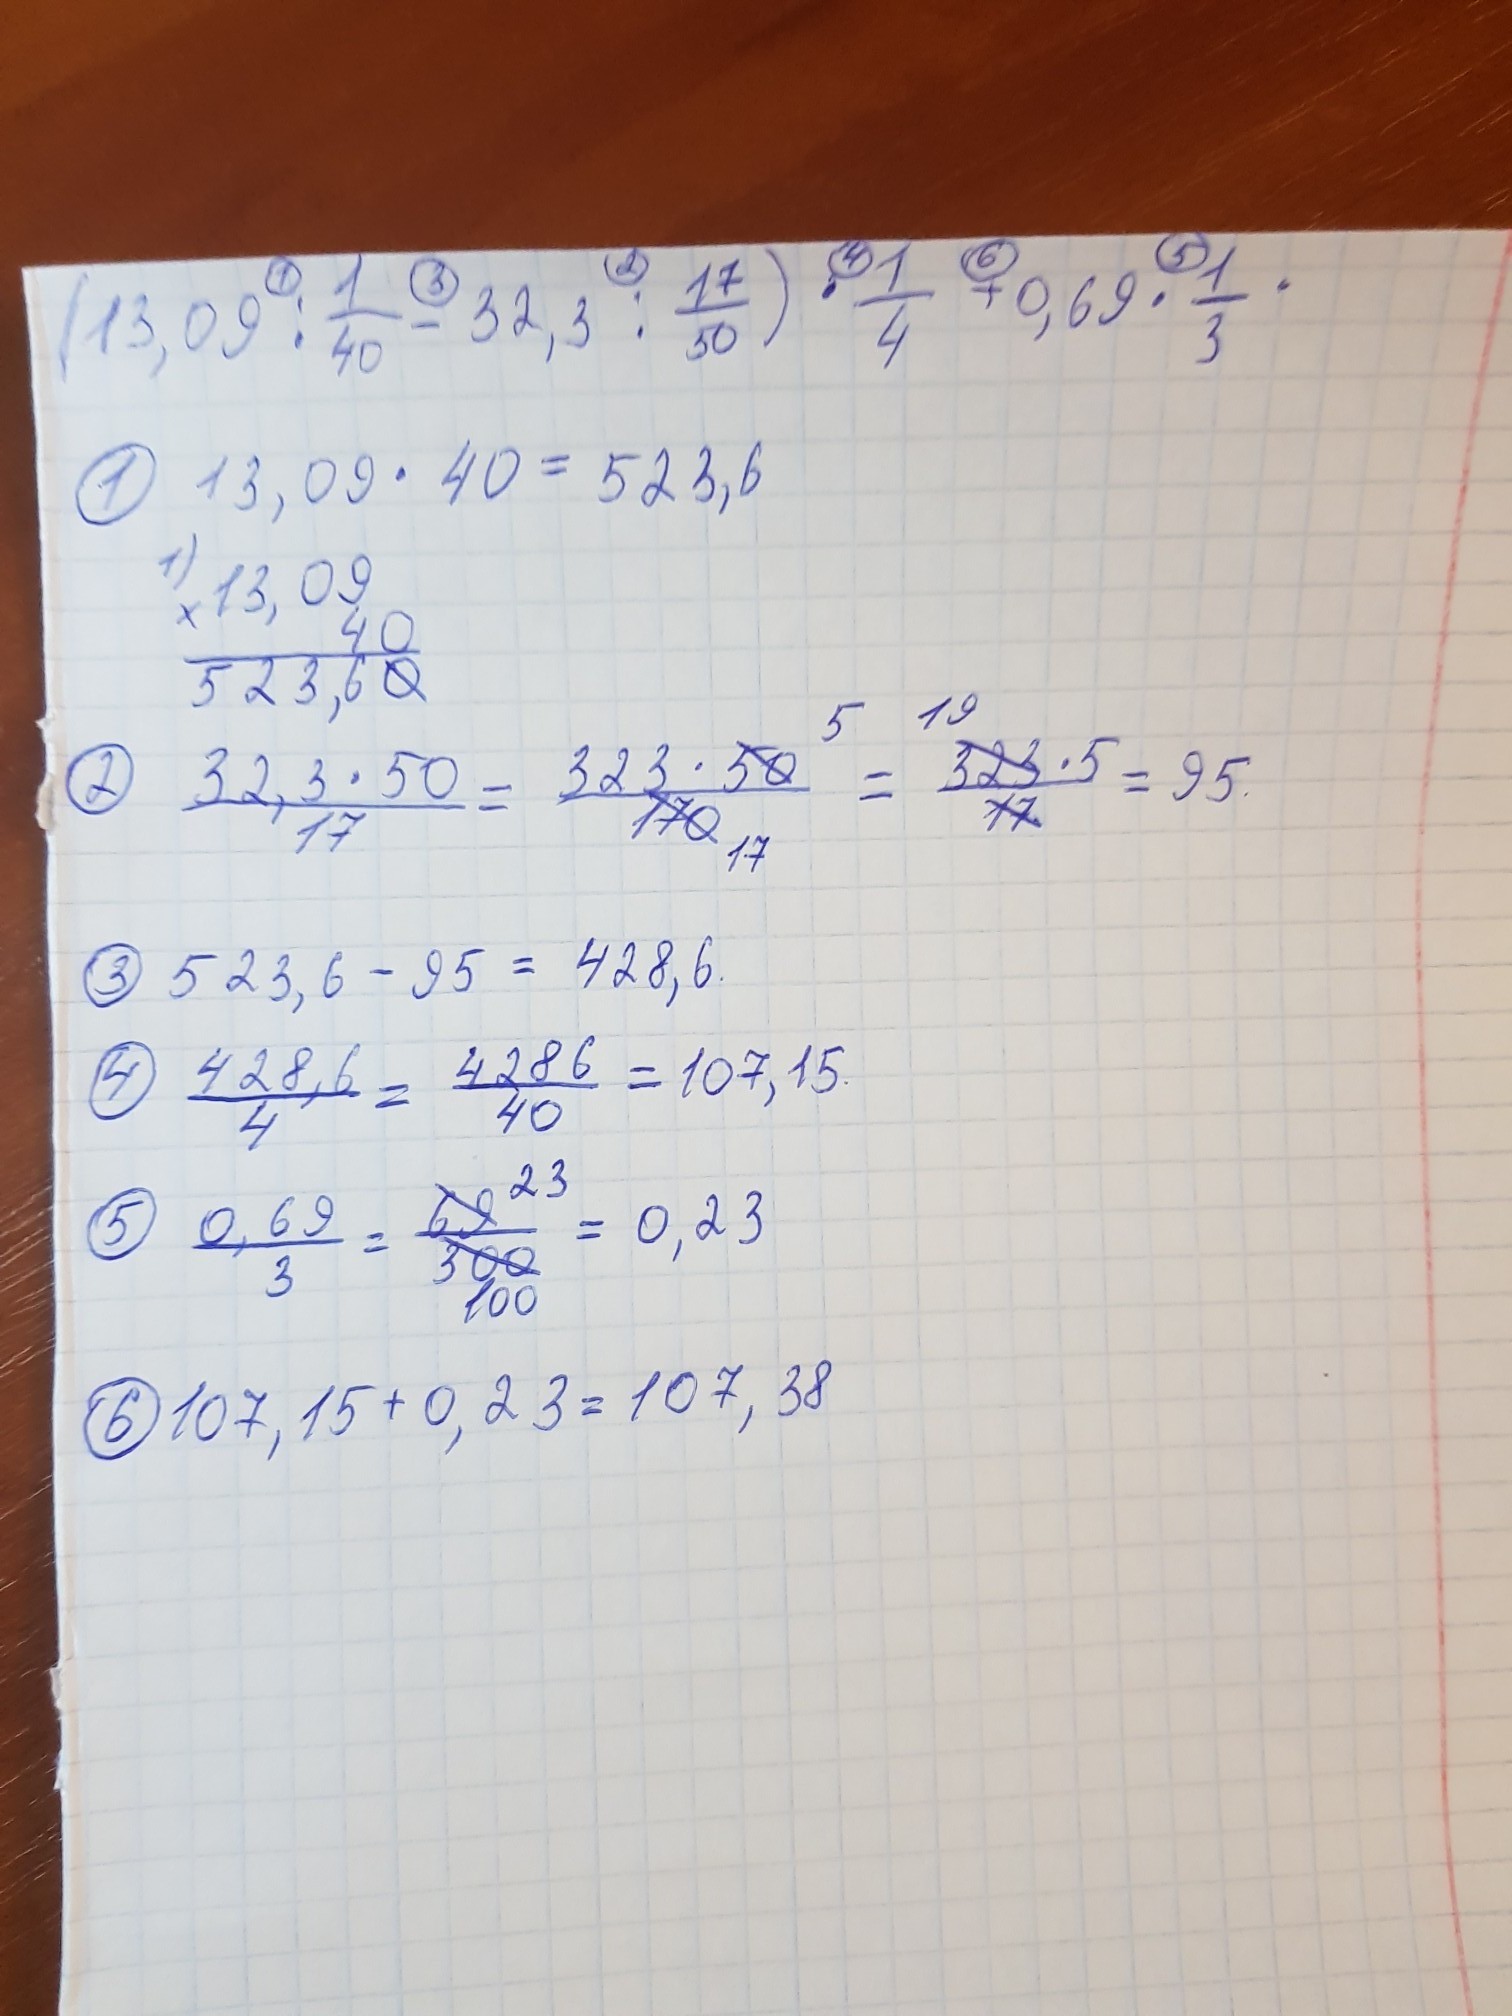 (13,09 ①: 1/40 ③- 32,3 ②: 17/50) ④· 1/4 ⑥+ 0,69 ⑤· 1/3 ·
① 13,09 · 40 = 523,6
1) × 13,09
40
523,60
② 32,3 · 50 / 17 = 323 · 50 5 / 170 17 = 19 323 · 5 / 17 = 95.
③ 523,6 - 95 = 428,6.
④ 428,6 / 4 = 4286 / 40 = 107,15.
⑤ 0,69 / 3 = 69 23 / 300 100 = 0,23
⑥ 107,15 + 0,23 = 107,38